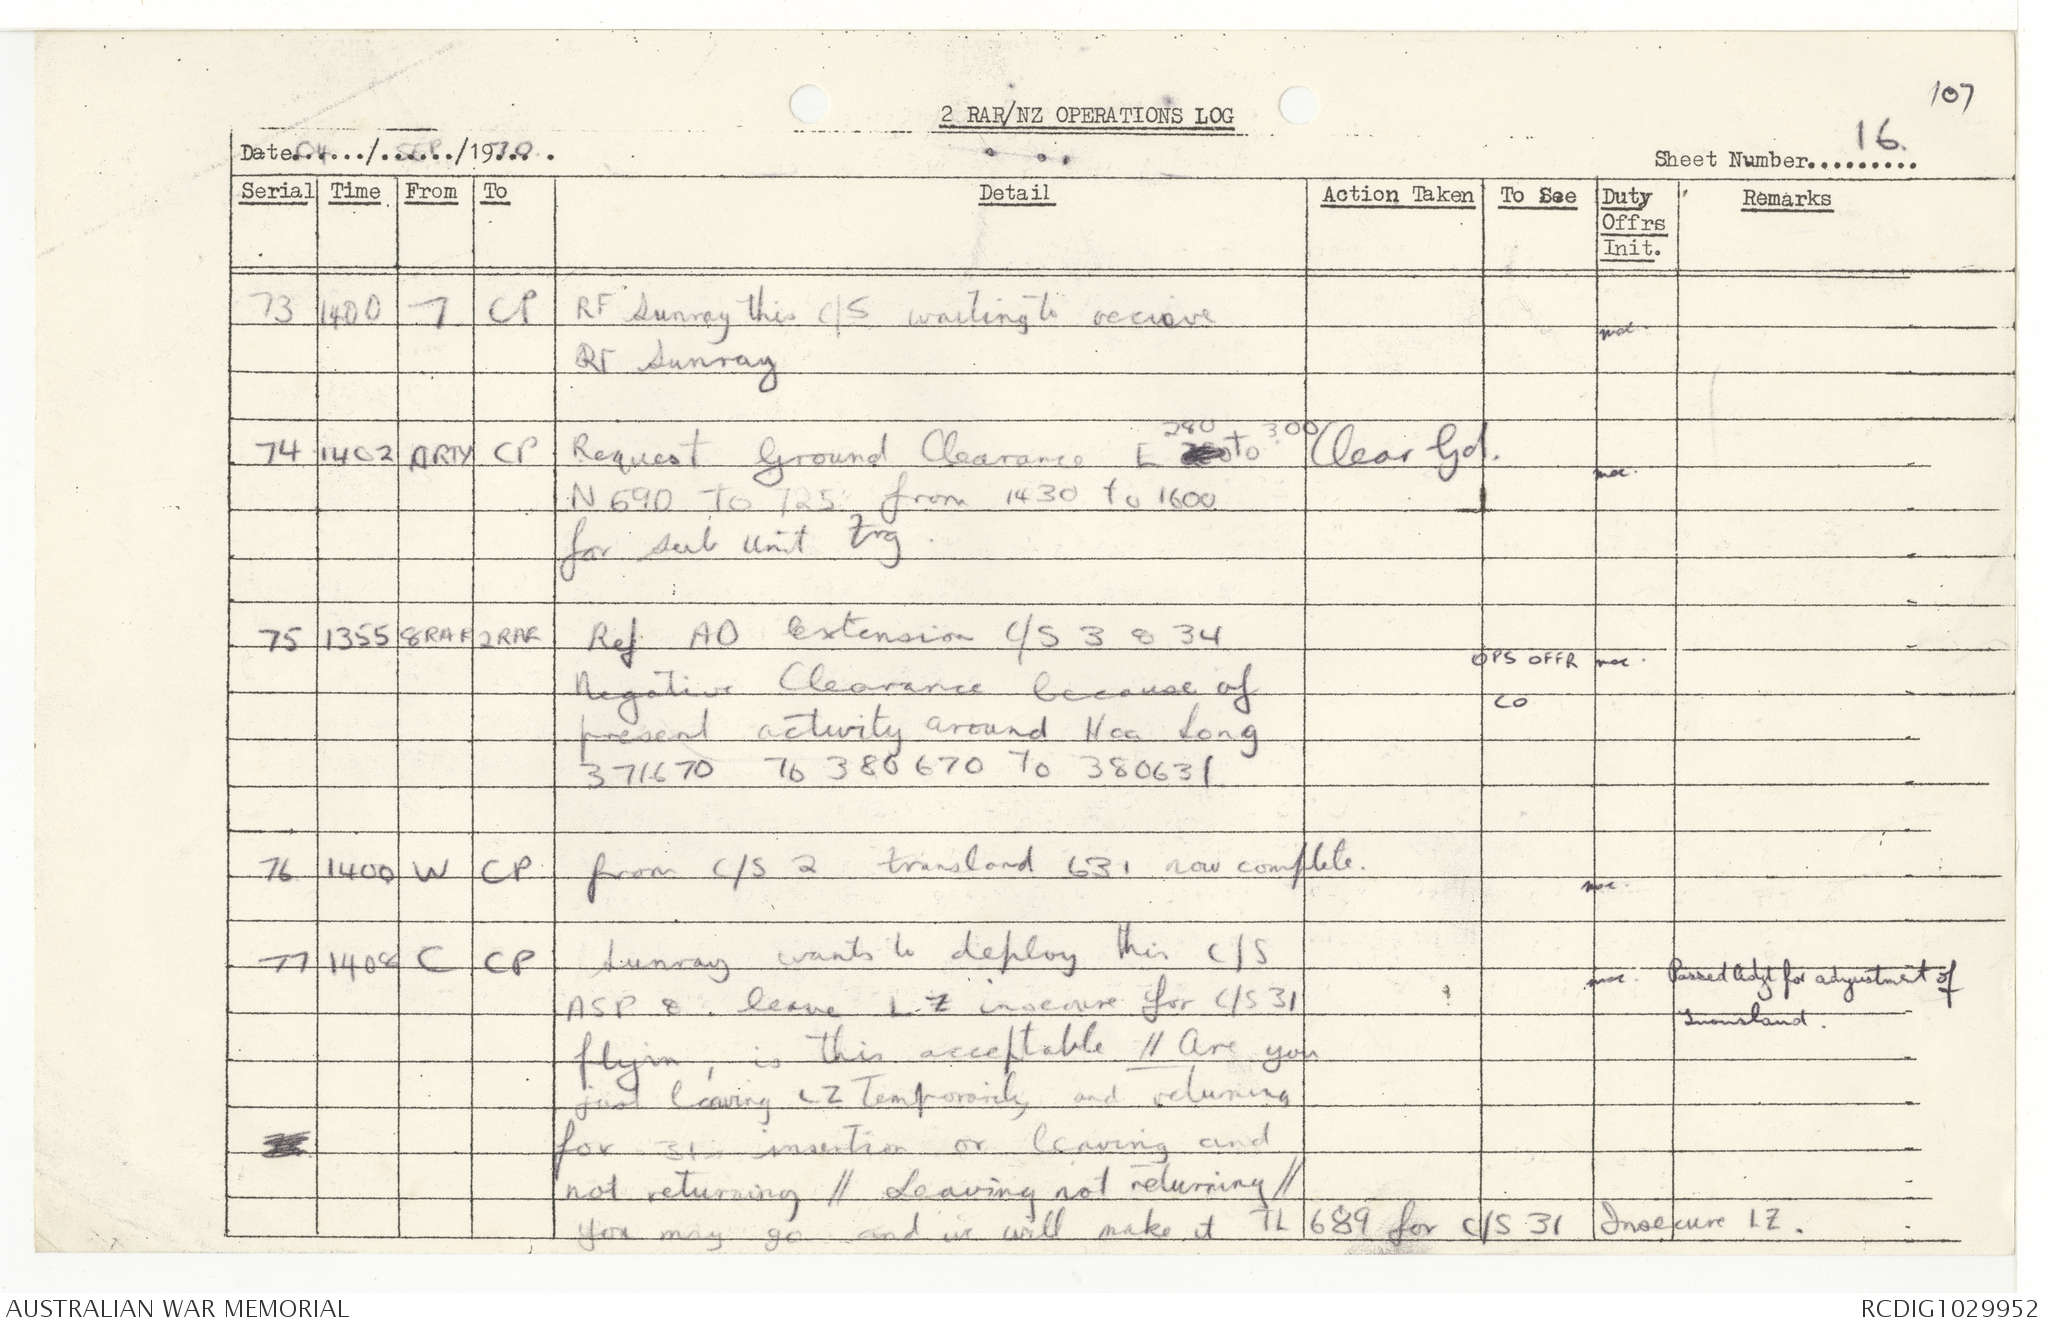 107
2 RAR/NZ OPERATIONS LOG
16.
Date 04/SEP/1970
Sheet Number..........
Serial Time From To Detail Action Taken To See Duty Offrs Init. Remarks
73 1400 7 CP RF Sunray this C/S waiting to recieve
RF Sunray
74 1402 ARTY CP Request Ground Clearance E 280 to 300 Clear Gd.
N 690 TO 725 from 1430 to 1600
for sub unit trg.
75 1355 8RAR 2RAR Ref AO extension C/S 3 & 34
OPS OFFR
Negative Clearance because of
CO
present activity around Hoa Long
371670 To 380670 To 380631
76 1400 W CP from C/S 2 transland 631 now complete.
77 1408 C CP Sunray wants to deploy this C/S
Passed Adjt for adjustment of
ASP & leave LZ insecure for C/S 31
Transland.
flyin, is this acceptable // Are you
just leaving LZ Temporarily and returning
for 31 insertion or leaving and
not returning // Leaving not returning //
you may go and we will make it TL 689 for C/S 31 Insecure LZ.
AUSTRALIAN WAR MEMORIAL
RCDIG1029952